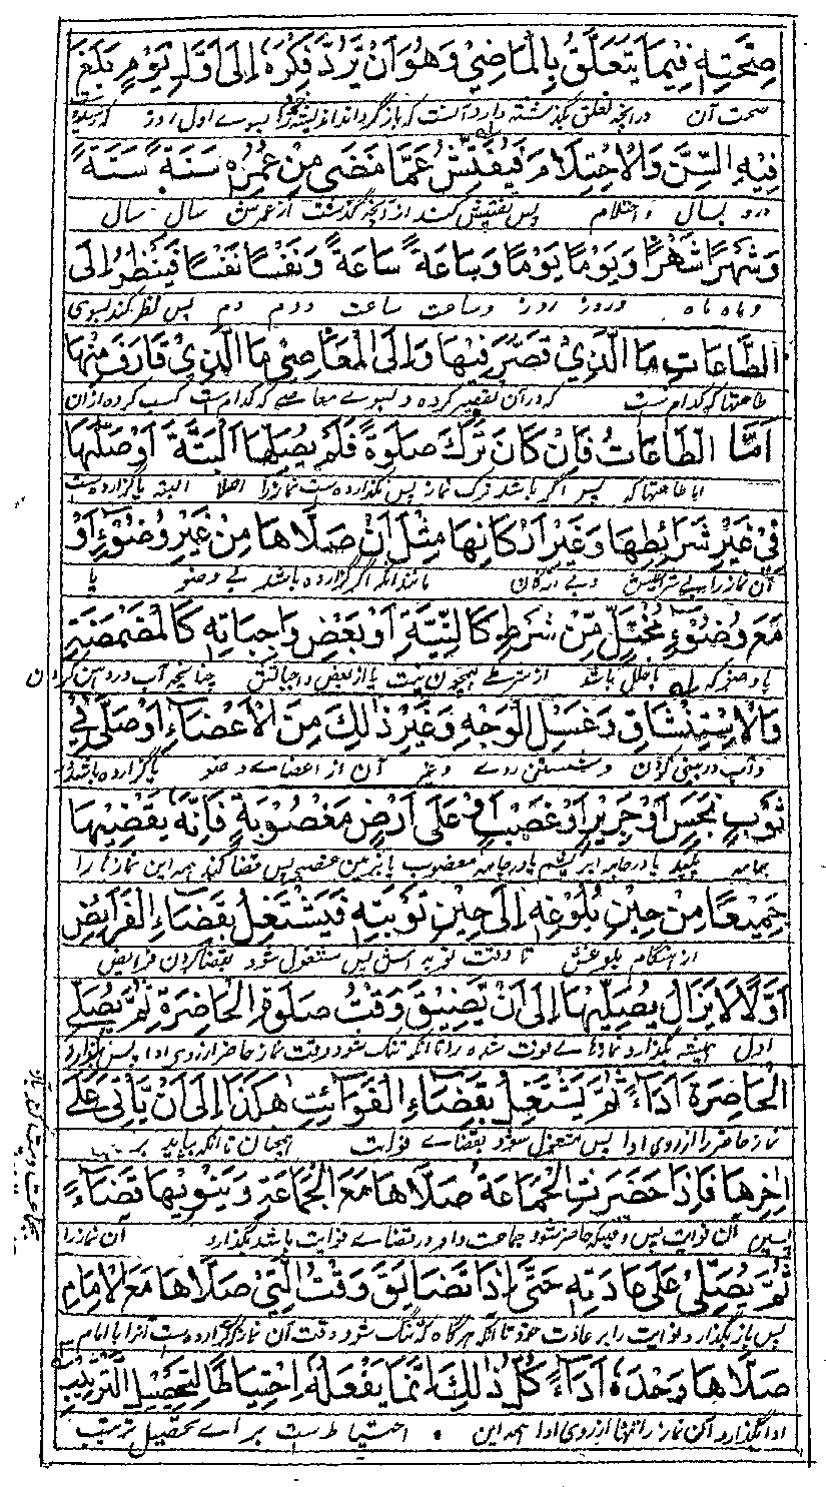 صِحَّتِهٖ فِيْمَا يَتَعَلَّقُ بِالْمَاضِيْ وَهُوَ اَنْ يَّرُدَّ فِكْرَهٗ اِلٰى اَوَّلِ يَوْمٍ بَلَغَ
صحت آن درانچه تعلق بگذشته دارد آنست که بازگرداند اندیشه خود را بسوے اول روز که رسیده
فِيْهِ السِّنَّ وَالْاِحْتِلَامَ فَيُفَتِّشُ عَمَّا مَضٰى مِنْ عُمُرِهٖ سَنَةً سَنَةً
درو بسال و احتلام پس تفتیش کند از آنچه گذشت از عمرش سال سال
وَشَهْرًا شَهْرًا وَيَوْمًا يَوْمًا وَسَاعَةً سَاعَةً وَنَفْسًا نَفْسًا فَيَنْظُرُ اِلَى
و ماه ماه و روز روز و ساعت ساعت و دم دم پس نظر کند بسوی
الطَّاعَاتِ مَا الَّذِيْ قَصَّرَ فِيْهَا وَاِلَى الْمَعَاصِيْ مَا الَّذِيْ قَارَفَ مِنْهَا
طاعتها که کدام ست که در آن تقصیر کرده و بسوے معاصے که کدام ست کسب کرده از آن
اَمَّا الطَّاعَاتُ فَاِنْ كَانَ تَرَكَ صَلٰوةً فَلَمْ يُصَلِّهَا اَلْبَتَّةَ اَوْ صَلّٰهَا
اما طاعتها که پس اگر باشد ترک نماز پس نگزارده ست نماز را اصلا البته یا گزارده ست
فِيْ غَيْرِ شَرَائِطِهَا وَغَيْرِ اَرْكَانِهَا مِثْلَ اَنْ صَلَّاهَا مِنْ غَيْرِ وُضُوْءٍ اَوْ
آن نماز را بے شرائطش و بے ارکان مانند آنکه اگر گزارده باشد بے وضو یا
مَعَ وُضُوْءٍ مُخْتَلٍّ مِّنْ شَرْطٍ كَالنِّيَّةِ اَوْ بَعْضِ وَاجِبَاتِهٖ كَالْمَضْمَضَةِ
یا وضو که باخلل باشد از شرطے همچون نیت یا از بعض واجباتش چنانچه آب در دهن کردن
وَالْاِسْتِنْشَاقِ وَغَسْلِ الْوَجْهِ وَغَيْرِ ذٰلِكَ مِنَ الْاَعْضَاءِ اَوْ صَلّٰى فِيْ
و آب در بینی کردن و شستن روے و غیر آن از اعضاے وضو یا گزارده باشد
ثَوْبٍ نَجَسٍ اَوْ حَرِيْرٍ اَوْ غَصْبٍ اَوْ عَلٰى اَرْضٍ مَغْصُوْبَةٍ فَاِنَّهٗ يَقْضِيْهَا
بجامه پلید یا در جامه ابریشم یا در جامه مغصوب یا بزمین غصب پس قضا کند همه این نمازها را
جَمِيْعًا مِنْ حِيْنِ بُلُوْغِهٖ اِلٰى حِيْنِ تَوْبَتِهٖ فَيَشْتَغِلُ بِقَضَاءِ الْفَرَائِضِ
از هنگام بلوغش تا وقت توبه اش پس مشغول شود بقضا کردن فرایض
اَوَّلًا لَا يَزَالُ يُصَلِّيْهَا اِلٰى اَنْ يَّضِيْقَ وَقْتُ صَلٰوةِ الْحَاضِرَةِ ثُمَّ يُصَلِّى
اول همیشه بگذارد نمازهاے فوت شده را تا آنکه تنگ شود وقت نماز حاضر از روی ادا پس بگذارد
الْحَاضِرَةَ اَدَاءً ثُمَّ يَشْتَغِلُ بِقَضَاءِ الْفَوَائِتِ هٰكَذَا اِلٰى اَنْ يَّأْتِىَ عَلٰى
نماز حاضر را از روی ادا پس مشغول شود بقضاے فوایت همچنان تا آنکه بیاید بر
اٰخِرِهَا فَاِذَا حَضَرَتِ الْجَمَاعَةُ صَلَّاهَا مَعَ الْجَمَاعَةِ وَيَنْوِيْهَا قَضَاءً
پسین آن فوایت پس وقتیکه حاضر شود جماعت و او در قضاے فوایت باشد بگذارد آن نماز را
ثُمَّ يُصَلِّىْ عَلٰى عَادَتِهٖ حَتّٰى اِذَا تَضَايَقَ وَقْتُ الَّتِىْ صَلَّاهَا مَعَ الْاِمَامِ
پس باز بگذارد فوایت را بر عادت خود تا آنکه هرگاه که تنگ شود وقت آن نماز که گزارده ست آنرا با امام
صَلَّاهَا وَحْدَهٗ اَدَاءً كُلُّ ذٰلِكَ اِنَّمَا يَفْعَلُهٗ اِحْتِيَاطًا لِتَحْصِيْلِ التَّرْتِيْبِ
ادا بگذارد آن نماز را تنها از روی ادا همه این احتیاط ست براے تحصیل ترتیب